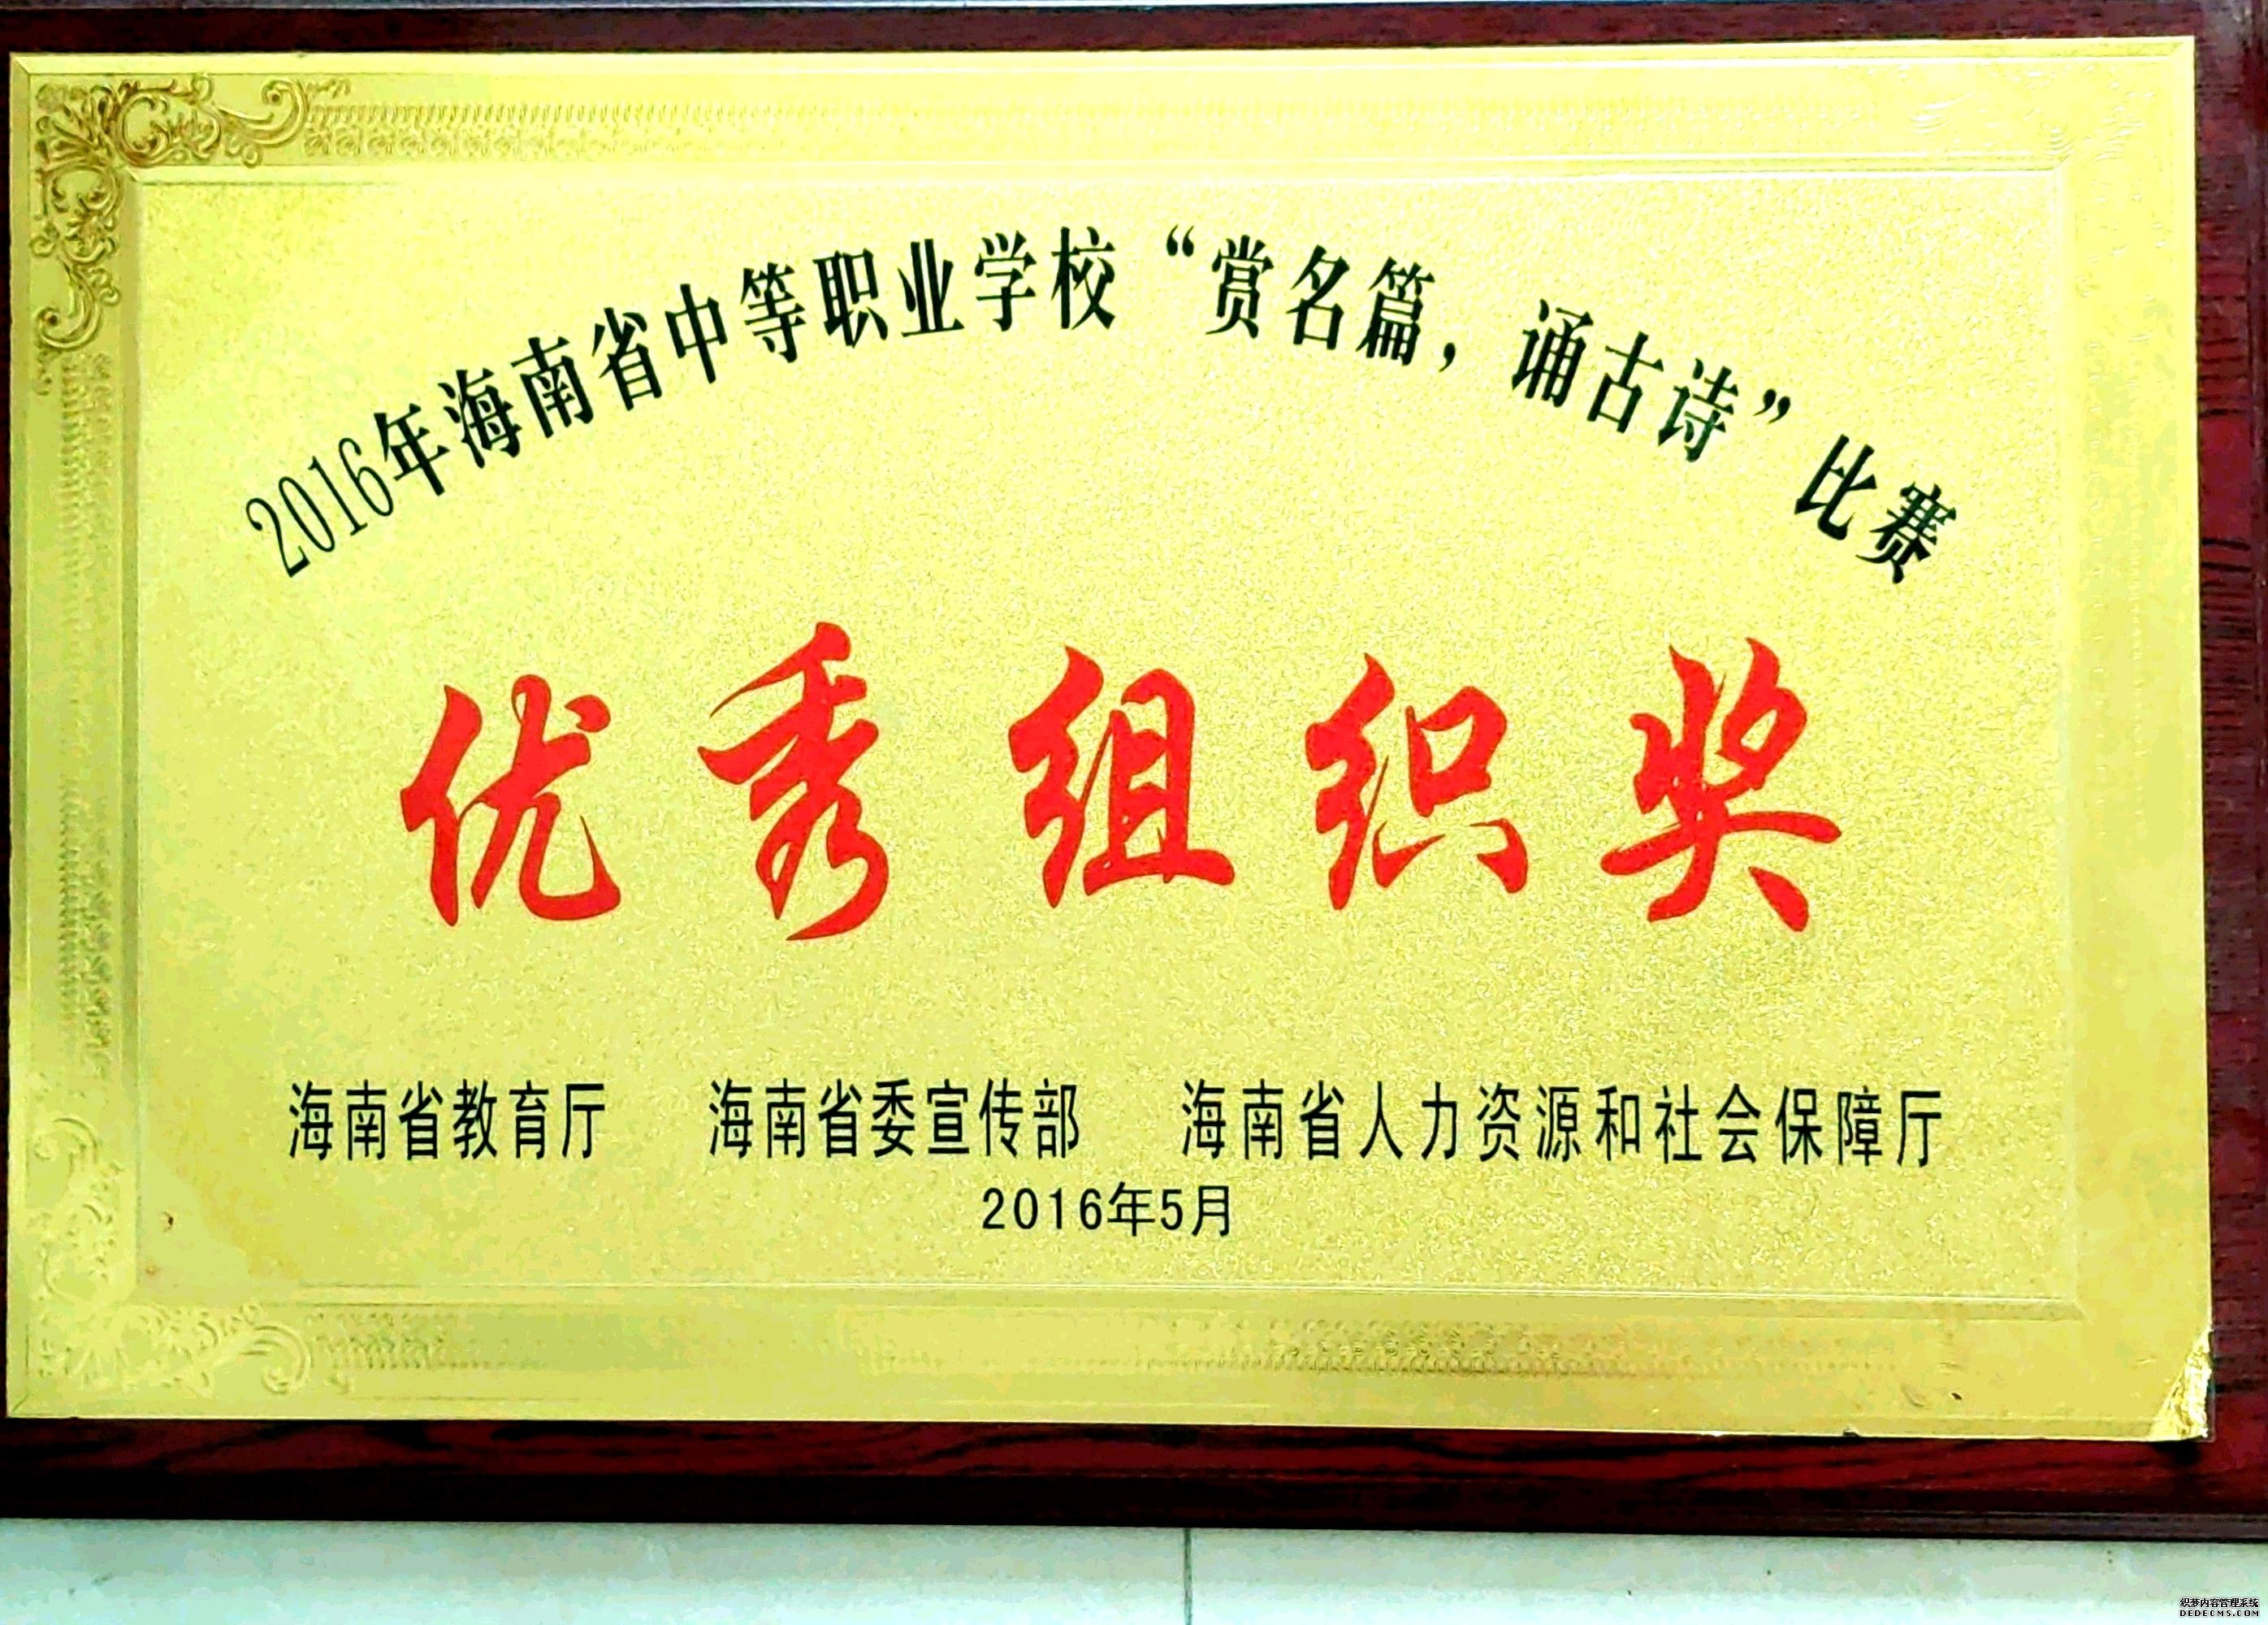 2016年海南省中等职业学校“赏名篇，诵古诗”比赛
优秀组织奖
海南省教育厅 海南省委宣传部 海南省人力资源和社会保障厅
2016年5月
织梦内容管理系统
DEDECMS.COM